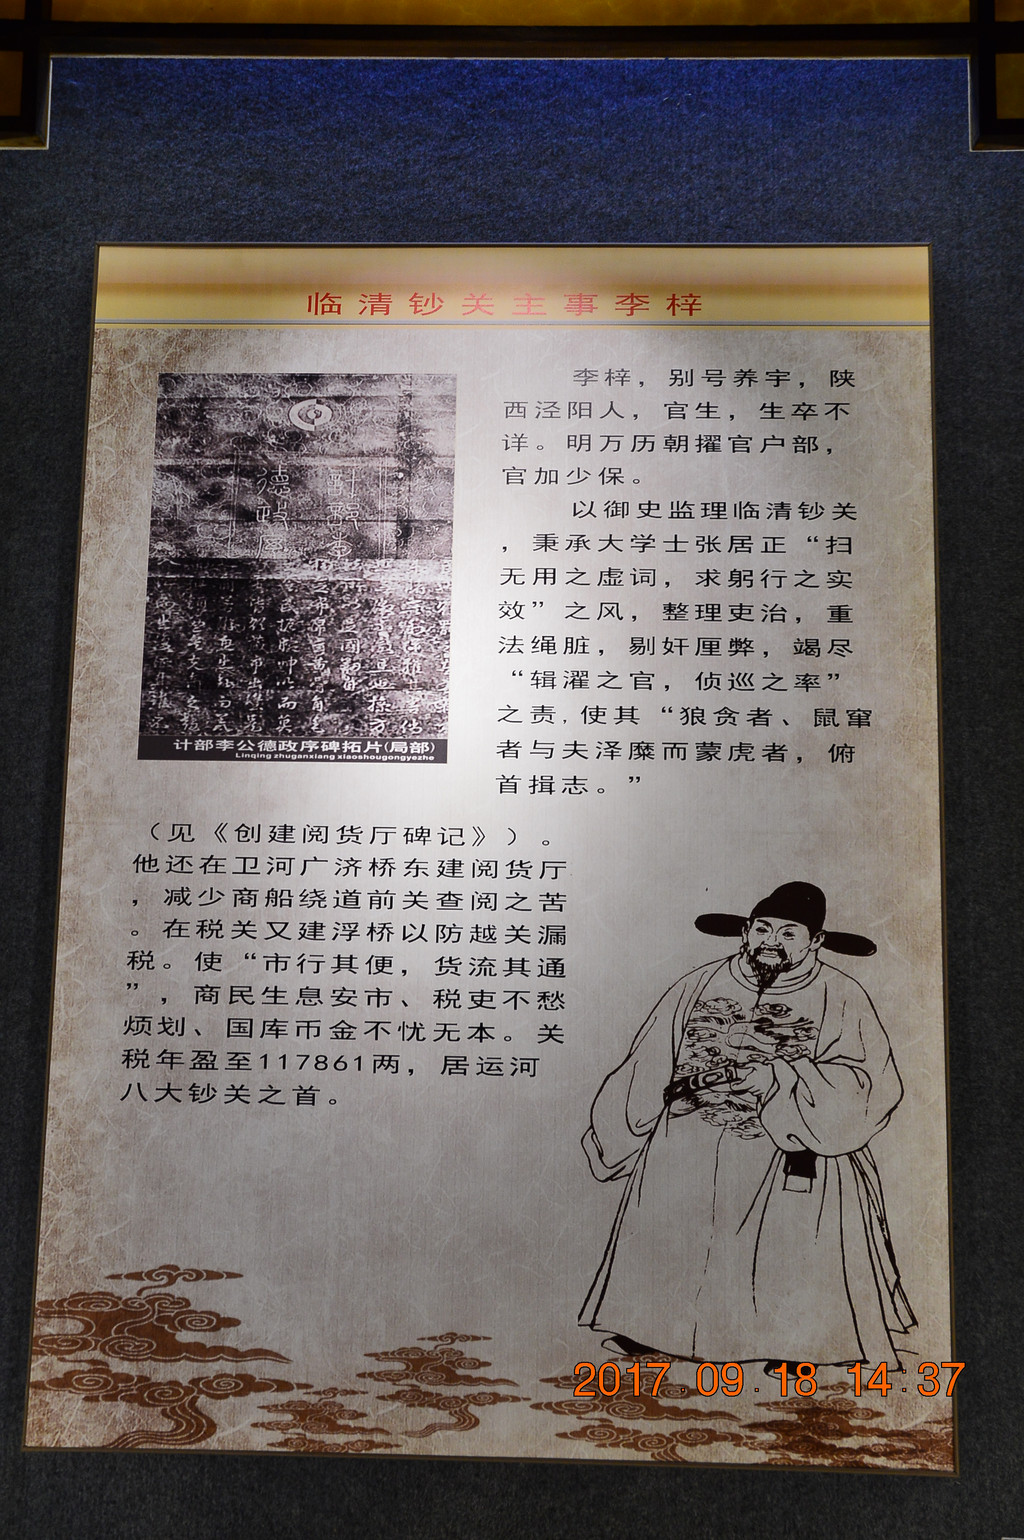 临清钞关主事李梓
李梓，别号养宇，陕
西泾阳人，官生，生卒不
详。明万历朝擢官户部，
官加少保。
以御史监理临清钞关
，秉承大学士张居正“扫
无用之虚词，求躬行之实
效”之风，整理吏治，重
法绳脏，剔奸厘弊，竭尽
“辑濯之官，侦巡之率”
之责，使其“狼贪者、鼠窜
者与夫泽糜而蒙虎者，俯
首揖志。”
德政序
计部李公德政序碑拓片(局部)
Linqing zhuganxiang xiaoshougongyezhe
（见《创建阅货厅碑记》）。
他还在卫河广济桥东建阅货厅
，减少商船绕道前关查阅之苦
。在税关又建浮桥以防越关漏
税。使“市行其便，货流其通
”，商民生息安市、税吏不愁
烦划、国库币金不忧无本。关
税年盈至117861两，居运河
八大钞关之首。
2017.09.18 14:37